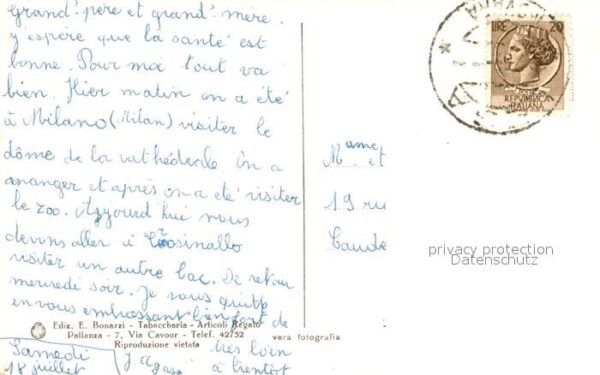 Grand-père et grand-mère.
y espère que la santé est
bonne. Pour moi tout va
bien. Hier matin on a été
à Milano (Milan) visiter le
dôme de la cathédrale. on a
a manger et après on a été visiter
le zoo. Aujourd'hui nous
devons aller à
visiter un autre lac. De retour
mercredi soir. Je vous quitte
en vous embrassant bien fort de
très loin
à bientôt
Samedi
18 juillet
Ediz. E. Bonazzi - Tabaccheria - Articoli Regalo
Pallanza - 7, Via Cavour - Telef. 42752
Riproduzione vietata
vera fotografia
LIRE 20
REPVBBLICA
ITALIANA
Mame et
19 ru
privacy protection
Datenschutz